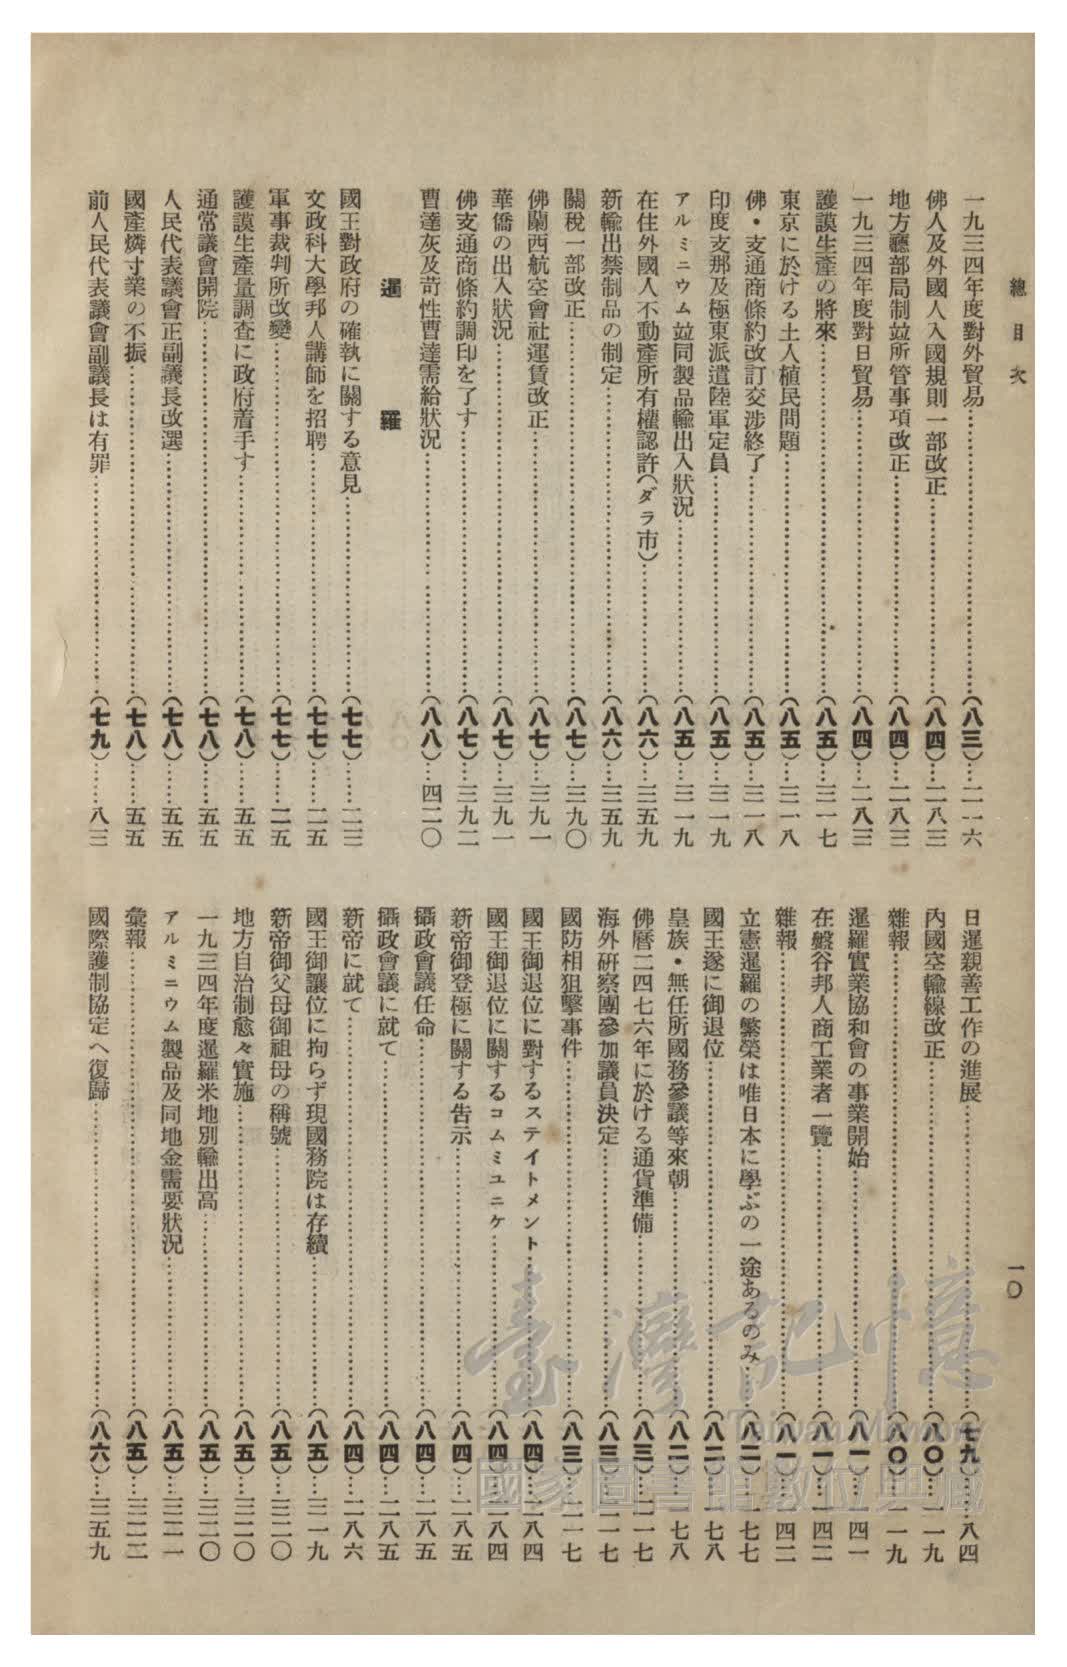 總目次
一〇
一九三四年度對外貿易……(八三)…二一六
佛人及外國人入國規則一部改正……(八四)…二八三
地方廳部局制竝所管事項改正……(八四)…二八三
一九三四年度對日貿易……(八四)…二八三
護謨生產の將來……(八五)…三一七
東京に於ける土人植民問題……(八五)…三一八
佛・支通商條約改訂交涉終了……(八五)…三一八
印度支那及極東派遣陸軍定員……(八五)…三一九
アルミニウム竝同製品輸出入狀況……(八五)…三一九
在住外國人不動產所有權認許(ダラ市)……(八六)…三五九
新輸出禁制品の制定……(八六)…三五九
關稅一部改正……(八七)…三九〇
佛蘭西航空會社運賃改正……(八七)…三九一
華僑の出入狀況……(八七)…三九一
佛支通商條約調印を了す……(八七)…三九二
曹達灰及苛性曹達需給狀況……(八八)…四二〇
暹羅
國王對政府の確執に關する意見……(七七)……二三
文政科大學邦人講師を招聘……(七七)……二五
軍事裁判所改變……(七七)……二五
護謨生產量調查に政府着手す……(七八)……五五
通常議會開院……(七八)……五五
人民代表議會正副議長改選……(七八)……五五
國產燐寸業の不振……(七八)……五五
前人民代表議會副議長は有罪……(七九)……八三
日暹親善工作の進展……(七九)……八四
內國空輸線改正……(八〇)…一一九
雜報……(八〇)…一一九
暹羅實業協和會の事業開始……(八一)…一四一
在盤谷邦人商工業者一覽……(八一)…一四二
雜報……(八一)…一四二
立憲暹羅の繁榮は唯日本に學ぶの一途あるのみ……(八二)…一七七
國王遂に御退位……(八二)…一七八
皇族・無任所國務參議等來朝……(八二)…一七八
佛曆二四七六年に於ける通貨準備……(八三)…二一七
海外硏察團參加議員決定……(八三)…二一七
國防相狙擊事件……(八三)…二一七
國王御退位に對するステイトメント……(八四)…二八四
國王御退位に關するコムミユニケ……(八四)…二八四
新帝御登極に關する告示……(八四)…二八五
攝政會議任命……(八四)…二八五
攝政會議に就て……(八四)…二八五
新帝に就て……(八四)…二八六
國王御讓位に拘らず現國務院は存續……(八五)…三一九
新帝御父母御祖母の稱號……(八五)…三二〇
地方自治制愈々實施……(八五)…三二〇
一九三四年度暹羅米地別輸出高……(八五)…三二〇
アルミニウム製品及同地金需要狀況……(八五)…三二一
彙報……(八五)…三二二
國際護制協定へ復歸……(八六)…三五九
臺灣記憶
Taiwan Memory
國家圖書館數位典藏